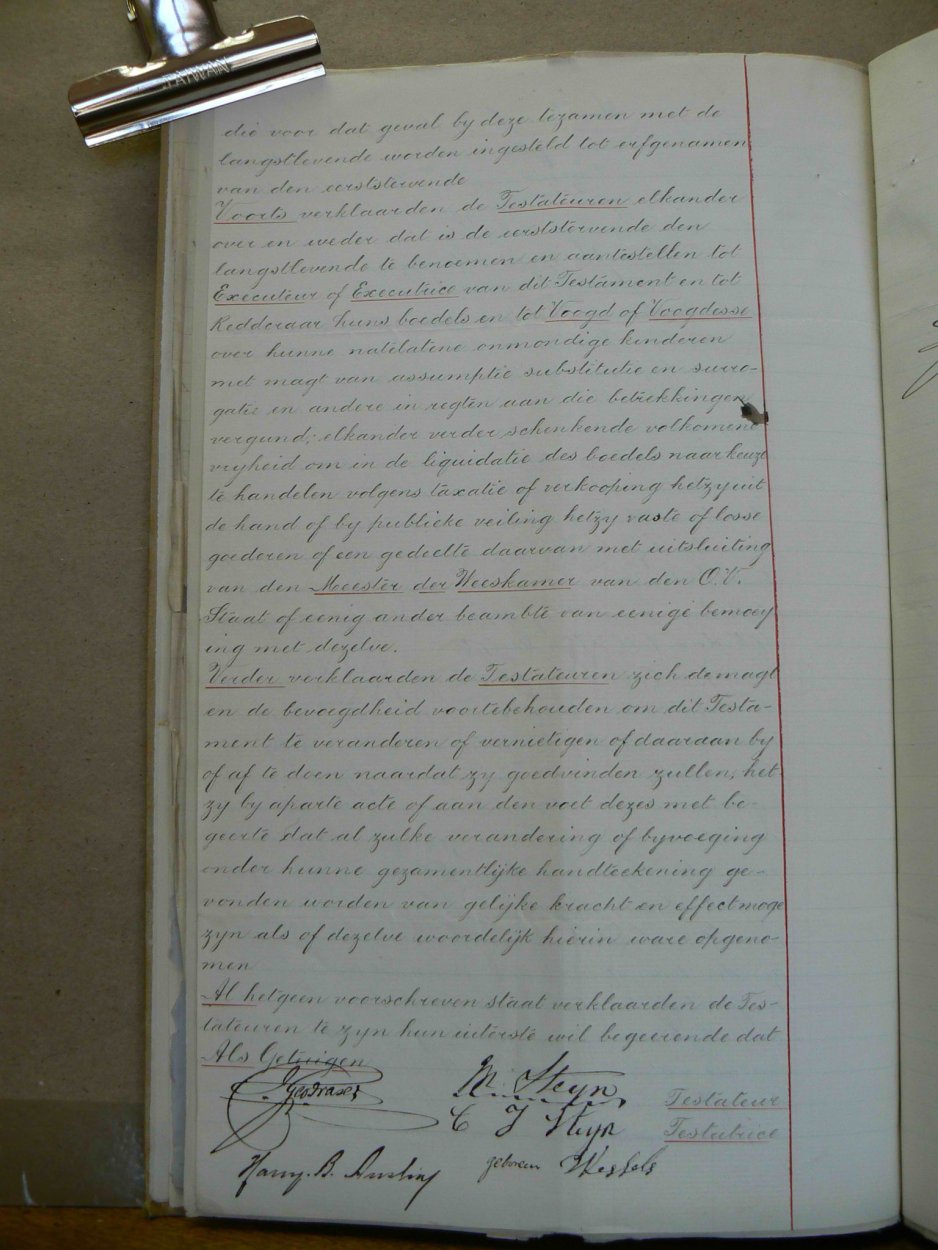 TAIWAN
die voor dat geval by deze tezamen met de
langstlevende worden ingesteld tot erfgenamen
van den eerststervende
Voorts verklaarden de Testateuren elkander
over en weder dat is de eerststervende den
langstlevende te benoemen en aantestellen tot
Executeur of Executrice van dit Testament en tot
Redderaar huns boedels en tot Voogd of Voogdesse
over hunne natelatene onmondige kinderen
met magt van assumptie substitutie en surro-
gatie en andere in regten aan die betrekkingen
vergund; elkander verder schenkende volkomene
vryheid om in de liquidatie des boedels naar keuze
te handelen volgens taxatie of verkooping hetzy uit
de hand of by publieke veiling hetzy vaste of losse
goederen of een gedeelte daarvan met uitsluiting
van den Meester der Weeskamer van den O.V.
Staat of eenig ander beambte van eenige bemoey
ing met dezelve.
Verder verklaarden de Testateuren zich de magt
en de bevoegdheid voortebehouden om dit Testa-
ment te veranderen of vernietigen of daaraan by
of af te doen naardat zy goedvinden zullen, het
zy by aparte acte of aan den voet dezes met be-
geerte dat al zulke verandering of byvoeging
onder hunne gezamentlijke handteekening ge-
vonden worden van gelijke kracht en effect moge
zyn als of dezelve woordelijk hierin ware opgeno-
men
Al hetgeen voorschreven staat verklaarden de Tes-
tateuren te zyn hun uiterste wil begeerende dat
Als Getuigen
Geo Fraser
M. Steyn Testateur
C J Steyn Testatrice
Harry. B. geboren Wessels